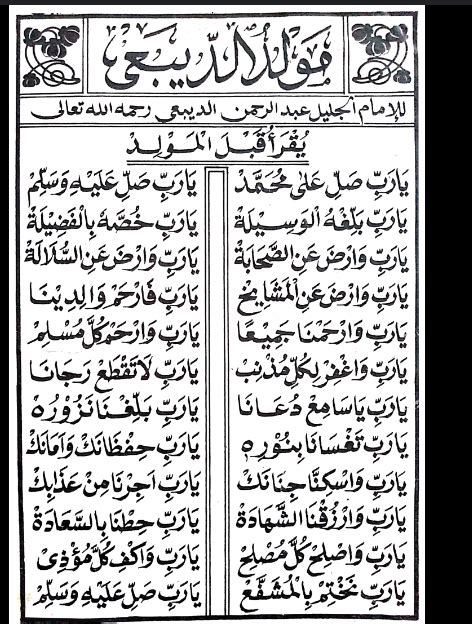 مَوْلِدُ الدِّيبَعِي
للإمام الجليل عبد الرحمن الديبعي رحمه الله تعالى
يُقْرَأُ قَبْلَ الْمَوْلِدْ
يَارَبِّ صَلِّ عَلَى مُحَمَّدْ يَارَبِّ صَلِّ عَلَيْهِ وَسَلِّمْ
يَارَبِّ بَلِّغْهُ الْوَسِيلَةْ يَارَبِّ خُصَّهُ بِالْفَضِيلَةْ
يَارَبِّ وَارْضَ عَنِ الصَّحَابَةْ يَارَبِّ وَارْضَ عَنِ السُّلَالَةْ
يَارَبِّ وَارْضَ عَنِ الْمَشَايِخْ يَارَبِّ فَارْحَمْ وَالِدِيْنَا
يَارَبِّ وَارْحَمْنَا جَمِيْعًا يَارَبِّ وَارْحَمْ كُلَّ مُسْلِمْ
يَارَبِّ وَاغْفِرْ لِكُلِّ مُذْنِبْ يَارَبِّ لَا تَقْطَعْ رَجَانَا
يَارَبِّ يَاسَامِعْ دُعَانَا يَارَبِّ بَلِّغْنَا نَزُوْرُهْ
يَارَبِّ تَغْشَانَا بِنُوْرِهْ يَارَبِّ حِفْظَانَكْ وَاَمَانَكْ
يَارَبِّ وَاسْكِنَّا جِنَانَكْ يَارَبِّ اَجِرْنَا مِنْ عَذَابِكْ
يَارَبِّ وَارْزُقْنَا الشَّهَادَةْ يَارَبِّ حِطْنَا بِالسَّعَادَةْ
يَارَبِّ وَاصْلِحْ كُلَّ مُصْلِحْ يَارَبِّ وَاكْفِ كُلَّ مُؤْذِىْ
يَارَبِّ نَخْتِمْ بِالْمُشَفَّعْ يَارَبِّ صَلِّ عَلَيْهِ وَسَلِّمْ